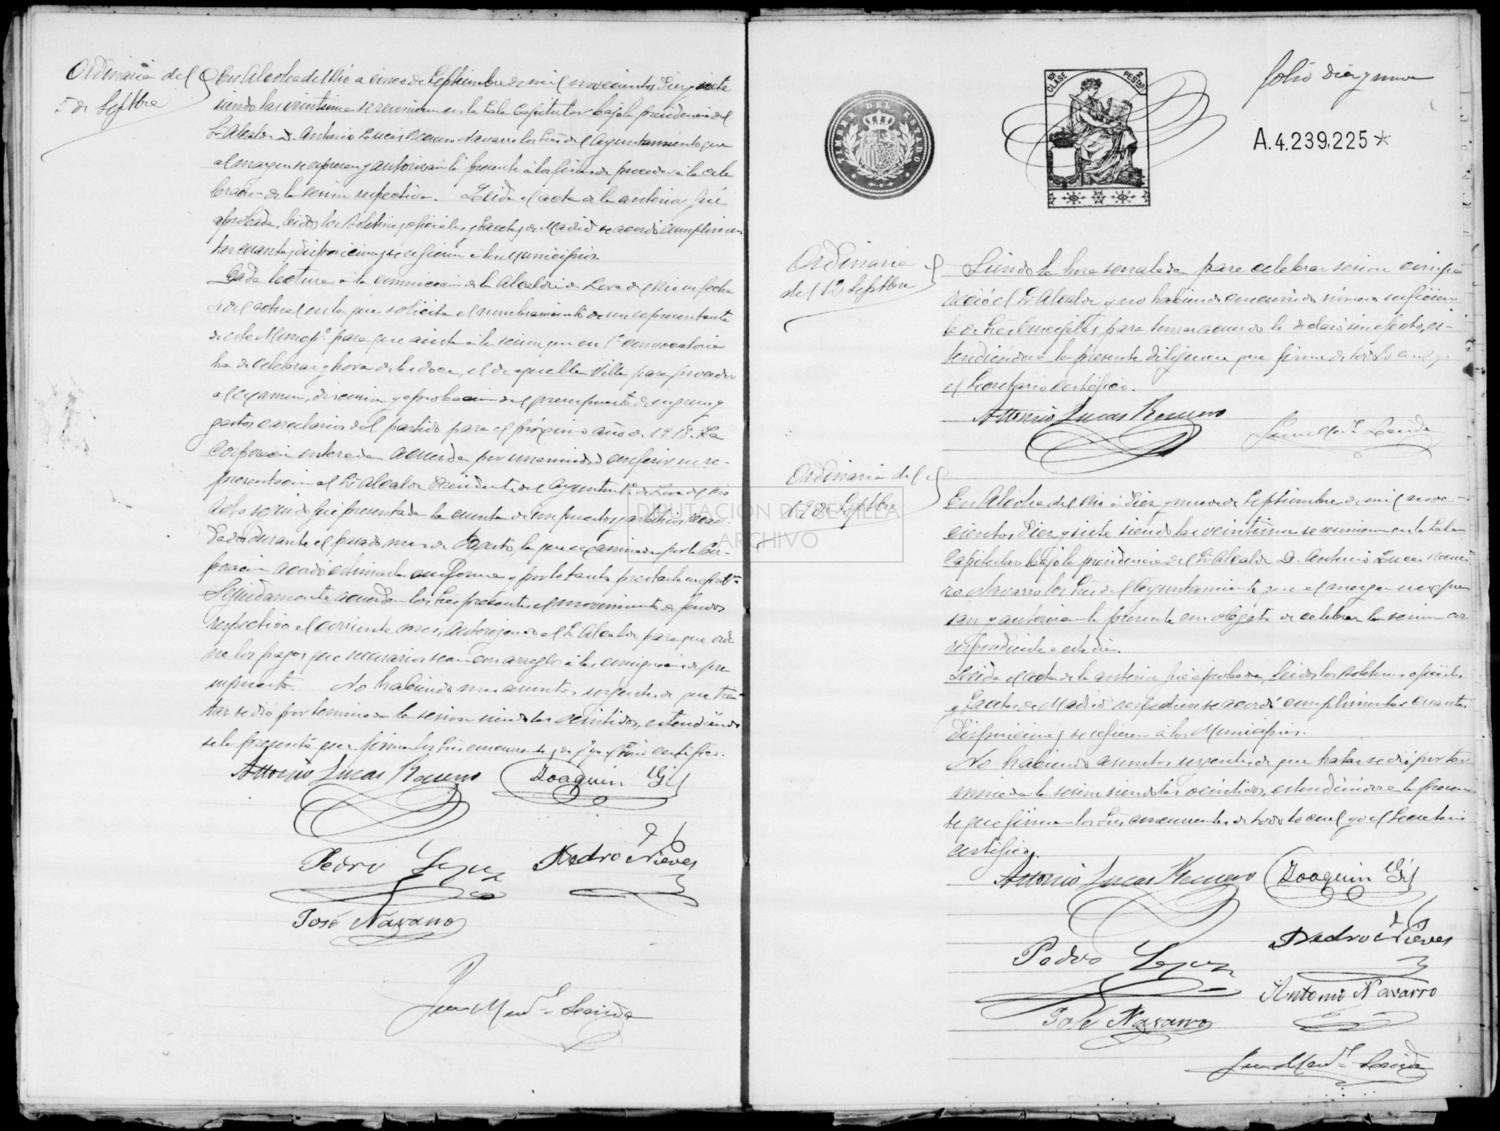 Ordinaria del
5 de Septbre
En Alcolea del Rio a cinco de Septiembre de mil novecientos diez y siete
siendo las veintiuna se reunieron en la Sala Capitular bajo la presidencia del
Sr Alcalde D. Antonio Lucas Romero Navarro los Sres del Ayuntamiento que
al margen se expresan y autorizan la presente a los fines de proceder a la cele
bracion de la sesion respectiva. Leida el acta de la anterior fué
aprobada, leidos los Boletines oficiales y Gacetas de Madrid se acordó cumplimen
tar cuantas disposiciones se refieran a los Municipios.
Dada lectura a la comunicacion de la Alcaldia de Lora del Rio su fecha
del actual en la que solicita el nombramiento de un representante
de este Municpº para que asista a la sesion que en 1ª convocatoria
ha de celebrar y hora de las doce, el de aquella Villa para proceder
al examen, discusion y aprobacion del presupuesto de ingresos y
gastos carcelarios del partido para el próximo año de 1918. La
Corporacion enterada acuerda por unanimidad conferir su re-
presentacion al Sr Alcalde Presidente del Ayuntº de Lora del Rio
Acto seguido fué presentada la cuenta de impuestos y arbitrios recau
dados durante el pasado mes de Agosto, la que examinada por la Cor-
poracion acordó estimarla conforme y por lo tanto prestarle su
Seguidamente acuerdan los Sres presentes el movimiento de fondos
respectivo al corriente mes, autorizando al Sr Alcalde para que orde
ne los pagos que necesarios sean con arreglo a las consignaciones de pre
supuesto. No habiendo mas asuntos urgentes de que tra-
tar se dió por terminada la sesion siendo las veintidos, extendiendo
se la presente que firman los Sres concurrentes y yo el Srio certifico.
Antonio Lucas Romero Joaquin Gil
Pedro Lopez Pedro Nieves
José Navarro
Juan Manl
folio diez y nueve
TIMBRE DEL ESTADO
CLASE PESETAS
A.4.239.225*
Ordinaria
del 12 Septbre
Siendo la hora señalada para celebrar sesion compa
reció el Sr Alcalde y no habiendo concurrido número suficien
te de Sres Concejales para tomar acuerdo la declaró sin efecto, ex-
tendiéndose la presente diligencia que firma de todo lo cual yo
el Secretario certifico.
Antonio Lucas Romero
Juan Manl
Ordinaria del
19 de Septbre
En Alcolea del Rio a diez y nueve de Septiembre de mil nove-
cientos diez y siete siendo las veintiuna se reunieron en la Sala
Capitular bajo la presidencia del Sr Alcalde D. Antonio Lucas Rome
ro Navarro los Sres del Ayuntamiento que al margen se expre
san y autorizan la presente con objeto de celebrar la sesion co
rrespondiente a este dia.
Leida el acta de la anterior fué aprobada, leidos los Boletines oficiales
y Gacetas de Madrid respectivos se acordó cumplimentar cuantas
disposiciones se refieran a los Municipios.
No habiendo asuntos urgentes de que tratar se dió por ter
minada la sesion siendo las veintidos, extendiendose la presen
te que firman los Sres concurrentes de todo lo cual yo el Secretario
certifico.
Antonio Lucas Romero Joaquin Gil
Pedro Nieves
Pedro Lopez
Antonio Navarro
José Navarro
Juan Manl
DIPUTACION DE SEVILLA
ARCHIVO